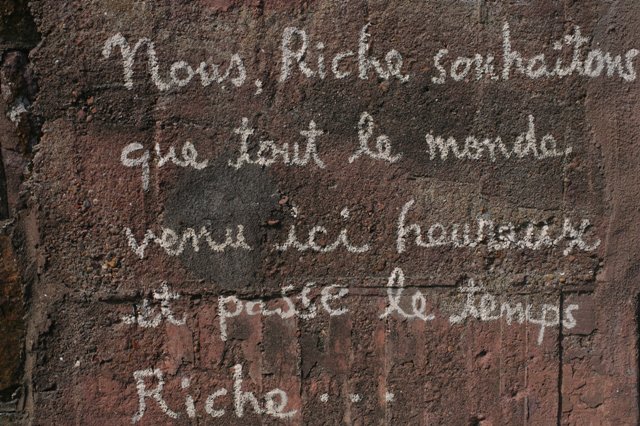 Nous, Riche souhaitons
que tout le monde
venu ici heureux
et passe le temps
Riche...